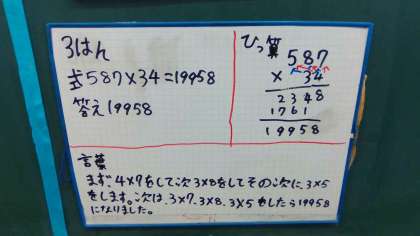 3はん
式587×34=19958
答え19958
ひっ算
587
×34
2348
1761
19958
言葉
まず、4×7をして次3×8をしてその次に、3×5
をします。次は、3×7.3×8.3×5をしたら19958
になりました。